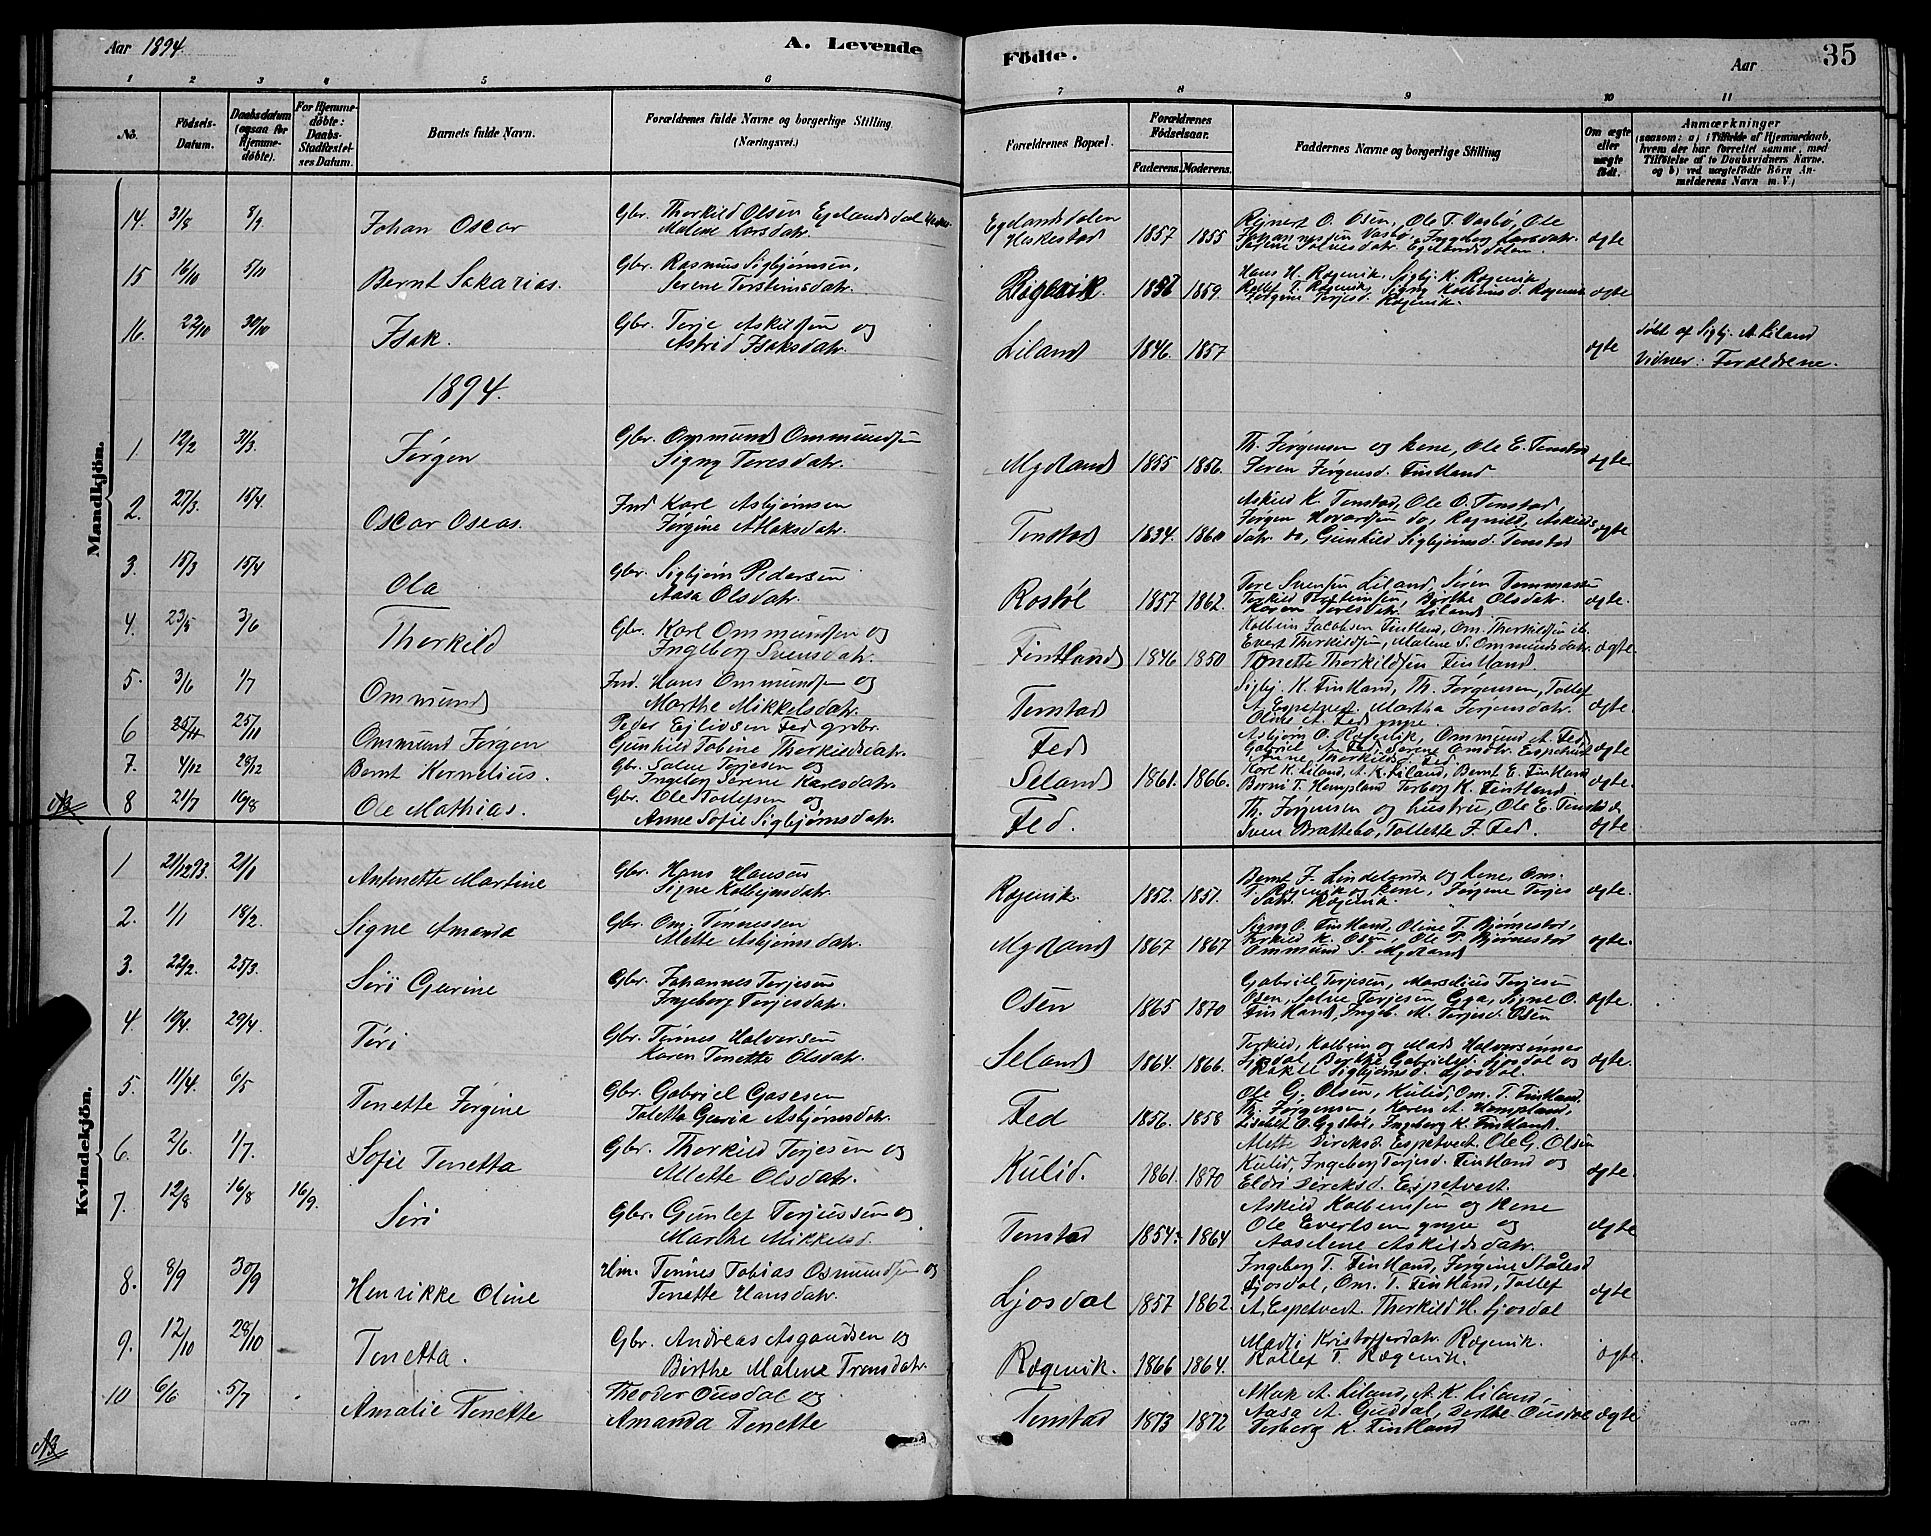 Aar 1894.
A. Levende
Födte.
Aar
35
1 2 3 4 5 6 7 8 9 10 11
No.
Födsels-Datum.
Daabsdatum (ogsaa for Hjemme-döbte).
For Hjemme-döbte: Daabs-Stadfæstel-ses Datum.
Barnets fulde Navn.
Forældrenes fulde Navne og borgerlige Stilling (Næringsvei.)
Forældrenes Bopæl.
Forældrenes Födselsaar.
Faderens. Moderens.
Faddernes Navne og borgerlige Stilling
Om ægte eller uægte födt.
Anmærkninger
(saasom: a) i Tilfælde af Hjemmedaab, hvem der har forrettet samme, med Tilföielse af to Daabsvidners Navne. og b) ved uægtefödte Börn An-melderens Navn m. V.)
Mandkjön.
14. 31/8 8/9 Johan Oscar Gbr. Thorkild Olsen Egelandsdal
Malene Larsdatr. Egelandsdalen Heskestad 1857 1855 Reinert O. Osen, Ole T. Vasbø, Ole
Johannessen Vasbø, Ingeborg Larsdatr. ægte
15 16/10 5/11 Bernt Sakarias. Gbr. Rasmus Sigbjørnsen,
Serene Torsteinsdatr. Rægevik 1859. Hans H. Rægevik, Sigbj. K. Rægevik
Rollef T. Rægevik, Signy Kolbeinsd. Rægevik
Jørgine Terjesd. Rægevik. ægte
16. 22/10 30/10 Isak. Gbr. Terje Askildsen og
Astrid Isaksdatr. Liland 1846. 1857 ægte døbt af Sigbj. A. Liland
Vidner: Forældrene.
1894.
1 12/2 31/3. Jørgen Gbr. Ommund Ommundsen
Signy Toresdatr. Mydland 1855 1856. Th. Jørgensen og kone, Ole E. Tonstad
Søren Jørgensd. Fintland ægte
2. 27/3. 15/4 Oscar Oseas. Ind Karl Asbjørnsen
Jørgine Atlaksdatr. Tonstad 1834. 1860 Askild K. Tonstad, Ole O. Tonstad,
Jørgen Hovardsen do, Ragnild Askilds
datr. do, Gunhild Sigbjørnsd. Tonstad ægte
3. 15/3 15/4 Ola Gbr. Sigbjørn Pedersen
Aasa Olsdatr. Rostøl 1857 1862. Tore Svensen Liland, Søren Tommassen
Terkild Torsteinsen, Birthe Olsdatr.
Karen Toresdatr. Liland ægte.
4. 23/5 3/6 Thorkild Gbr. Karl Ommundsen og
Ingeborg Svensdatr. Fintland 1846 1850 Kolbein Jacobsen Fintland, Om. Thorkildsen ib.
Evert Thorkildsen, Malene S. Ommundsdatr.
Tonette Thorkildsen Fintland ægte.
5. 3/6 1/7 Ommund Ind. Hans Ommundsen og
Marthe Mikkelsdatr. Tonstad Sigbj. K. Fintland, Th. Jørgensen, Tollef
A. Espetvedt Martha Terjesdatr.
A. Fed gnpe. ægte.
6 25/11 Ommund Jørgen Peder Ejlivsen Fed grbr.
Gunhild Tobine Thorkildsdatr. Fed Asbjørn O. Ommund A. Fed
Gabriel A. Fed, Serene Espetvedt
Anne Thorkildsd. Fed. ægte
7. 4/12 28/12 Bernt Kornelius. Gb. Salve Terjesen og
Ingeborg Serene Karlsdatr. Seland 1861. 1866. Karl K. Liland, A. K. Liland, Bernt E. Fintland
Berni T. Hompland Torborg K. Fintland. ægte.
NB 8 21/7 19/8 Ole Mathias. Gbr. Ole Tollefsen og
Anne Sofie Sigbjørnsdatr. Fed. Th. Jørgensen og hustru, Ole E. Tonstad
Sven Brattebø, Tollette J. Fed. ægte
Kvindekjön.
1 21/12 93. 21/1 Antonette Martine Gbr. Hans Hansen
Signe Kolbejnsdatr. Rægevik. 1852. 1857. Bernt F. Lindeland og kone, Om.
T. Rægevik og kone, Jørgine Terjes
datr. Rægevik. ægte.
2. 1/1 18/2. Signe Amanda Gbr. Om. Tønnessen
Alette Asbjørnsdatr. Mydland 1867 1867 Signy O. Fintland, Oline T. Bjørnestad,
Terkild K. Osen, Ole T. Bjørnestad
Ommund S. Mydland ægte.
3. 22/2. 25/3. Siri Gurine Gbr. Johannes Terjesen
Ingeborg Terjesdatr. Osen 1865 1870 Gabriel Terjesen, Marselius Terjesen
Osen, Salve Terjesen Gya, Signe O.
Fintland, Ingeb. M. Terjesd. Osen ægte.
4. 10/4. 29/4. Tøri Gbr. Tønnes Halvorsen
Karen Tonette Olsdatr. Seland 1864. 1866. Terkild, Kolbein og Mads Halvorsønner
Ljosdal, Berthe Gabrielsd. Ljosdal og
Rakel Sigbjørnsd. Ljosdal. ægte.
5. 11/4. 6/5 Tonette Jørgine Gbr. Gabriel Gasesen
Taletta Guria Asbjørnsdatr. Fed 1856. 1858 Ole G. Olsen, Kulid, Om. T. Fintland
Th. Jørgensen, Karen A. Hompland,
Lisabet O. Gystøl, Ingeborg K. Fintland. ægte.
6. 2/6 1/7. Sofie Tonetta Gbr. Thorkild Terjesen og
Allette Olsdatr. Kulid. 1861. 1870 Mette Direksd. Espetvedt. Ole G. Olsen
Kulid, Ingeborg Terjesd. Fintland og
Eldri Direksd. Espetvedt. ægte.
7. 12/8 16/8 16/9. Siri Gbr. Gunlef Terjussen og
Marthe Mikkelsd. Tonstad 1854. 1864 Askild Kolbeinsen og kone
Ole Evertsen gnpe og
Aaselene Askildsdatr. ægte
8. 8/9 30/9 Henrikke Oline Hm. Tønnes Tobias Osmundsen og
Tonette Hansdatr. Ljosdal 1857 1862. Ingeborg T. Fintland, Jørgine Stålesd
Ljosdal, Om. T. Fintland, Tollef
A. Espetvedt Thorkild H. Ljosdal ægte
9. 12/10 28/10 Tonetta. Gbr. Andreas Asgaudsen og
Birthe Malene Tronsdatr. Rægevik. 1866 1864. Madli Kristofferdatr. Rægevik.
Rollef T. Rægevik. ægte.
NB 10 6/6 5/7 Amalie Tonette Theodor Ousdal og
Amanda Tonette Tonstad 1873 1872 Atlak A. Liland, A. K. Liland,
Aasa A. Guddal, Berthe Ousdal
Torborg K. Fintland ægte